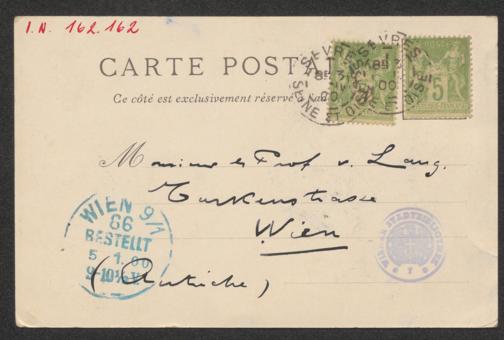 I.N. 162.162
CARTE POSTALE
Ce côté est exclusivement réservé à
5
SEINE ET OISE
Monsieur le Prof v. Lang.
Türkenstrasse
Wien
(Autriche)
WIEN 9/1
66
BESTELLT
5. 1. 00
9-10½V